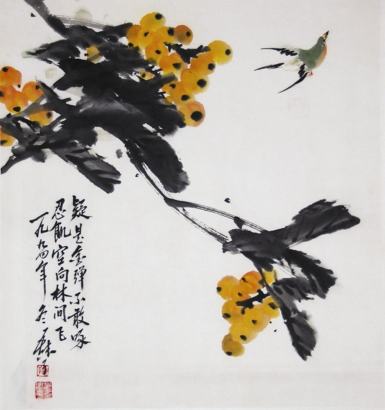 疑是金弹不敢啄
忍饥空向林间飞
一九九四年冬